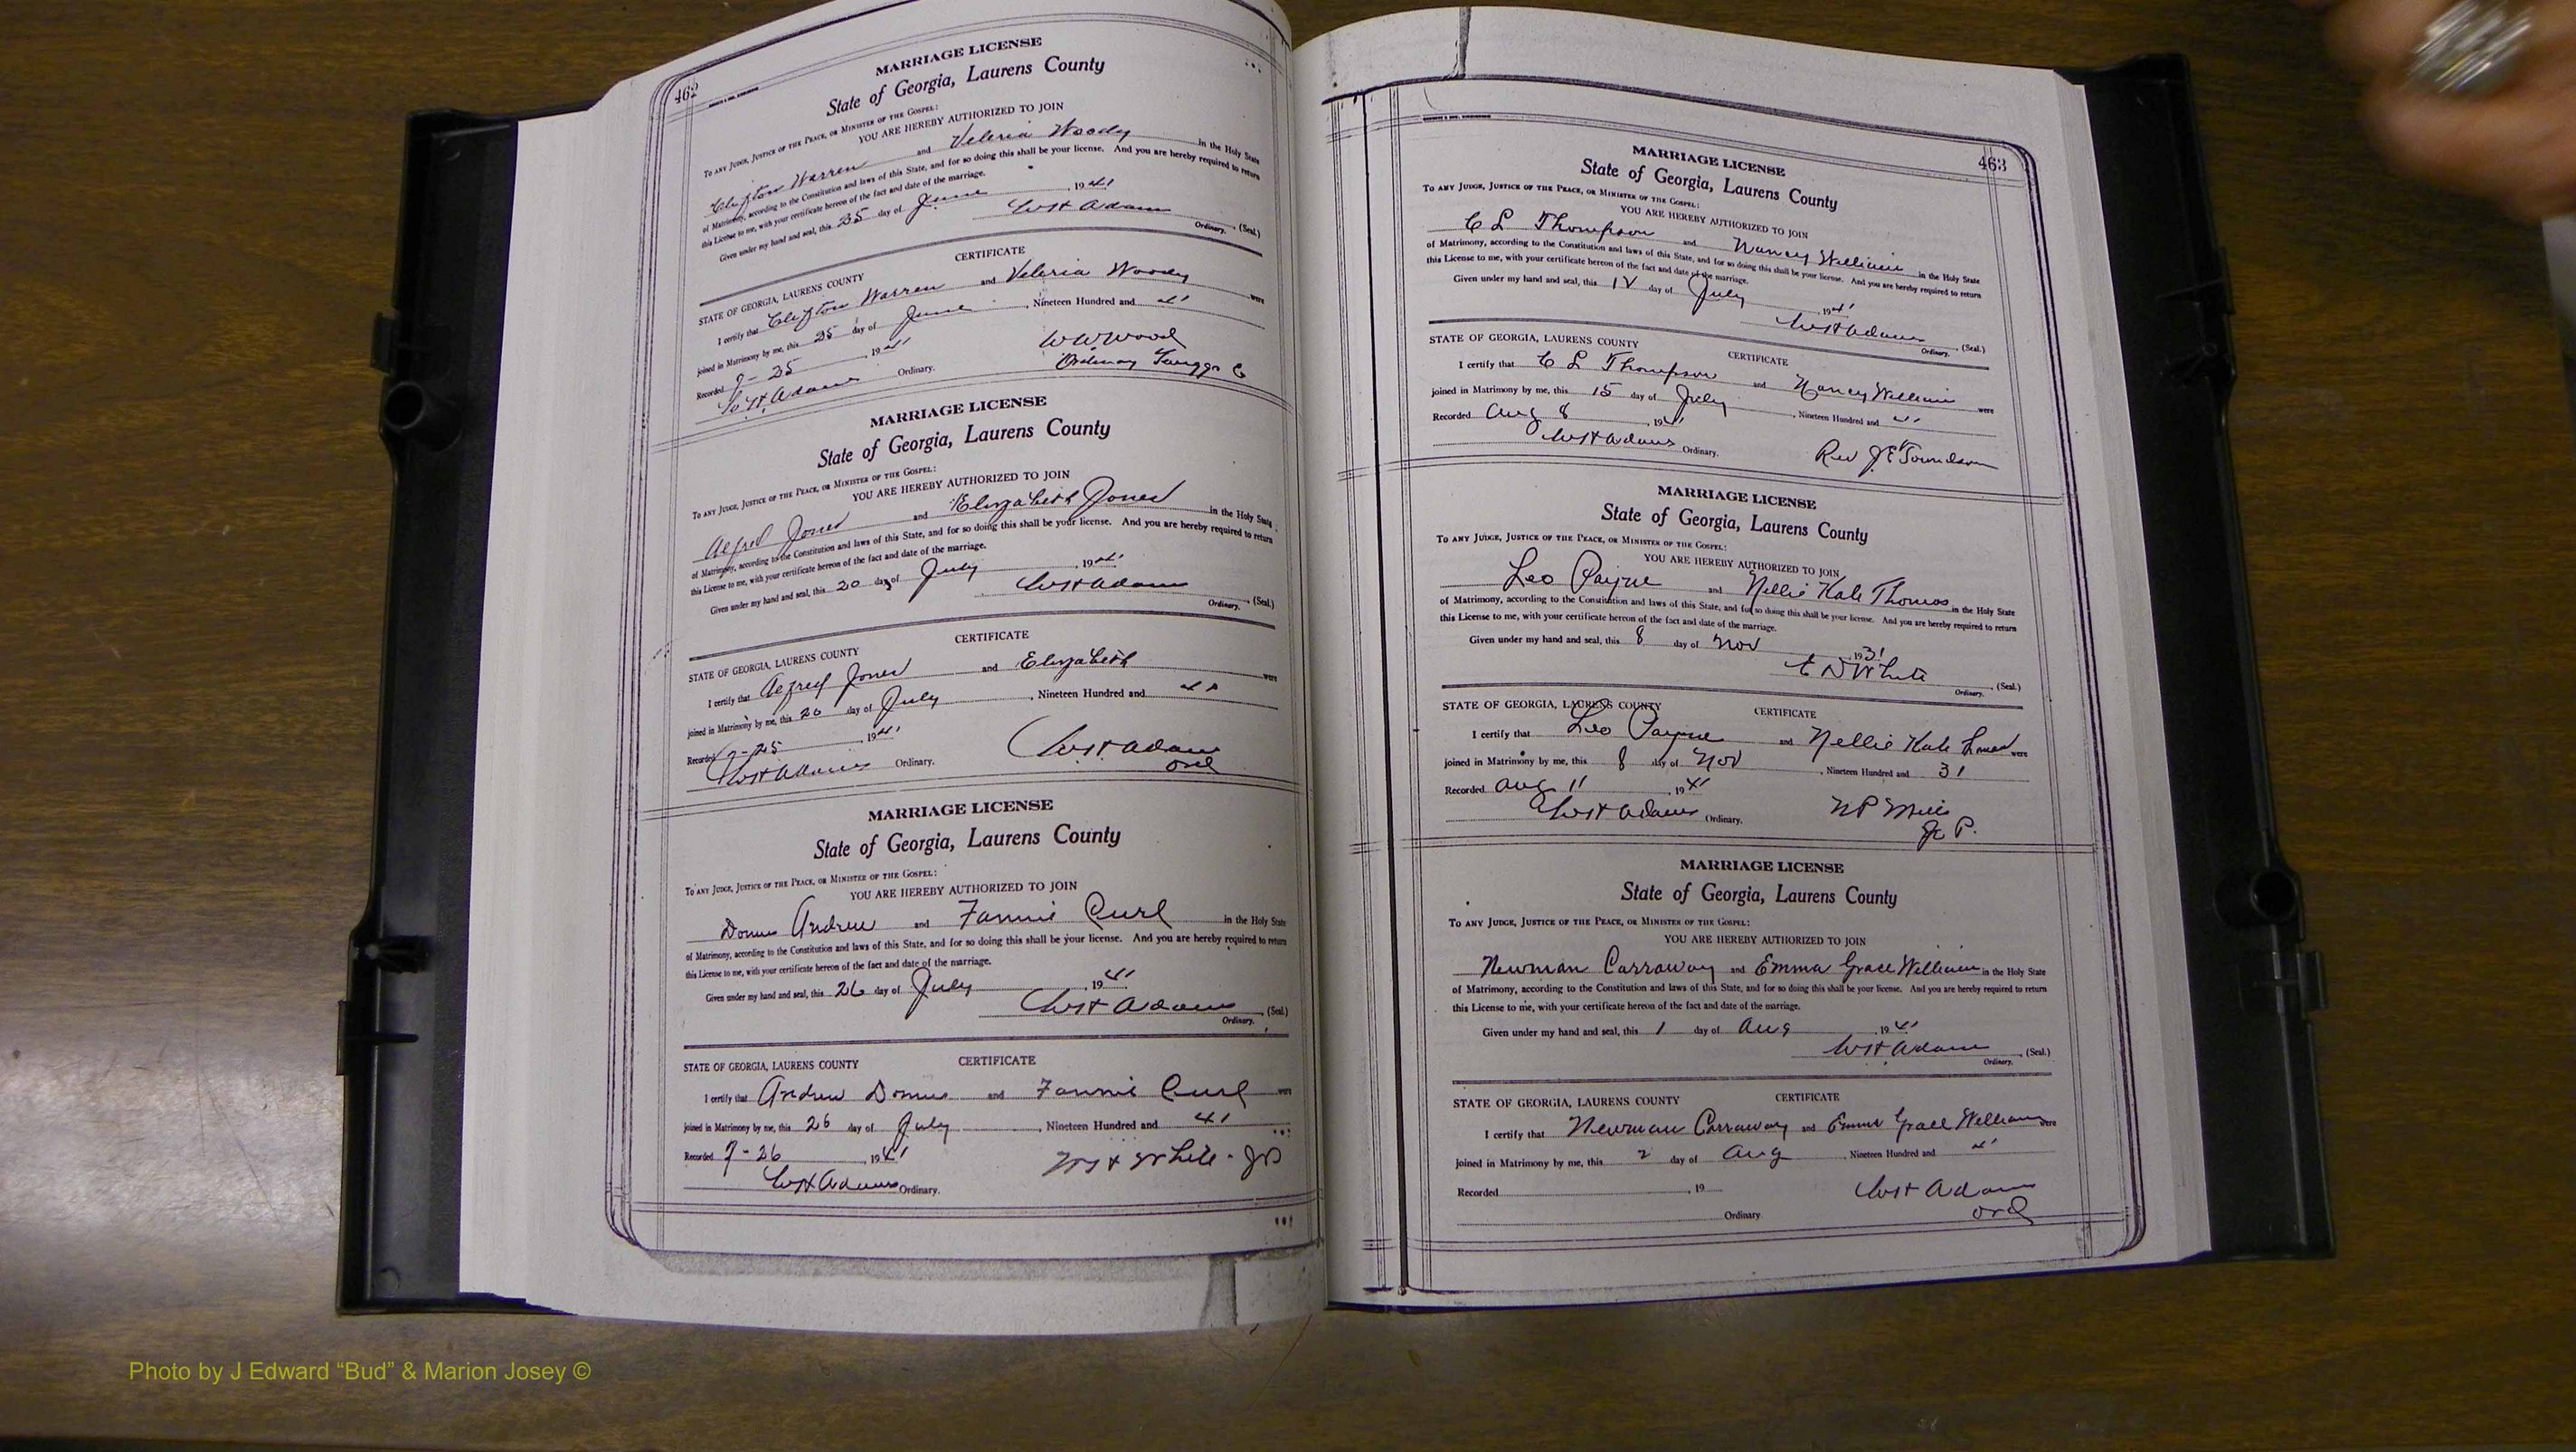 462
MARRIAGE LICENSE
State of Georgia, Laurens County
TO ANY JUDGE, JUSTICE OF THE PEACE, OR MINISTER OF THE GOSPEL:
YOU ARE HEREBY AUTHORIZED TO JOIN
Clifton Warren and Veleria Woody in the Holy State
of Matrimony, according to the Constitution and laws of this State, and for so doing this shall be your license. And you are hereby required to return
this License to me, with your certificate hereon of the fact and date of the marriage.
Given under my hand and seal, this 25 day of June, 1941
W H Adams (Seal.)
Ordinary.
CERTIFICATE
STATE OF GEORGIA, LAURENS COUNTY
I certify that Clifton Warren and Veleria Woody were
joined in Matrimony by me, this 25 day of June, Nineteen Hundred and 41
Recorded 7-25, 1941 W W Wood
W H Adams Ordinary. Ordinary Twiggs Co
MARRIAGE LICENSE
State of Georgia, Laurens County
TO ANY JUDGE, JUSTICE OF THE PEACE, OR MINISTER OF THE GOSPEL:
YOU ARE HEREBY AUTHORIZED TO JOIN
Alfred Jones and Elizabeth Jones in the Holy State
of Matrimony, according to the Constitution and laws of this State, and for so doing this shall be your license. And you are hereby required to return
this License to me, with your certificate hereon of the fact and date of the marriage.
Given under my hand and seal, this 20 day of July, 1941
W H Adams (Seal.)
Ordinary.
CERTIFICATE
STATE OF GEORGIA, LAURENS COUNTY
I certify that Alfred Jones and Elizabeth were
joined in Matrimony by me, this 20 day of July, Nineteen Hundred and 41
Recorded 7-25, 1941 W H Adams
W H Adams Ordinary. Ord
MARRIAGE LICENSE
State of Georgia, Laurens County
TO ANY JUDGE, JUSTICE OF THE PEACE, OR MINISTER OF THE GOSPEL:
YOU ARE HEREBY AUTHORIZED TO JOIN
Andrew and Fannie Curl in the Holy State
of Matrimony, according to the Constitution and laws of this State, and for so doing this shall be your license. And you are hereby required to return
this License to me, with your certificate hereon of the fact and date of the marriage.
Given under my hand and seal, this 26 day of July, 1941
W H Adams (Seal.)
Ordinary.
STATE OF GEORGIA, LAURENS COUNTY CERTIFICATE
I certify that Andrew and Fannie Curl were
joined in Matrimony by me, this 26 day of July, Nineteen Hundred and 41
Recorded 7-26, 1941 White JP
W H Adams Ordinary.
463
MARRIAGE LICENSE
State of Georgia, Laurens County
TO ANY JUDGE, JUSTICE OF THE PEACE, OR MINISTER OF THE GOSPEL:
YOU ARE HEREBY AUTHORIZED TO JOIN
C L Thompson and Nancy William in the Holy State
of Matrimony, according to the Constitution and laws of this State, and for so doing this shall be your license. And you are hereby required to return
this License to me, with your certificate hereon of the fact and date of the marriage.
Given under my hand and seal, this day of July, 1941
W H Adams (Seal.)
Ordinary.
STATE OF GEORGIA, LAURENS COUNTY CERTIFICATE
I certify that C L Thompson and Nancy William were
joined in Matrimony by me, this 15 day of July, Nineteen Hundred and 41
Recorded Aug 8, 1941
W H Adams Ordinary. Rev J E
MARRIAGE LICENSE
State of Georgia, Laurens County
TO ANY JUDGE, JUSTICE OF THE PEACE, OR MINISTER OF THE GOSPEL:
YOU ARE HEREBY AUTHORIZED TO JOIN
Leo Payne and Nellie Kate Thomas in the Holy State
of Matrimony, according to the Constitution and laws of this State, and for so doing this shall be your license. And you are hereby required to return
this License to me, with your certificate hereon of the fact and date of the marriage.
Given under my hand and seal, this 8 day of Nov, 1931
E D White (Seal.)
Ordinary.
STATE OF GEORGIA, LAURENS COUNTY CERTIFICATE
I certify that Leo Payne and Nellie Kate were
joined in Matrimony by me, this 8 day of Nov, Nineteen Hundred and 31
Recorded Aug 11, 1941
W H Adams Ordinary. J P.
MARRIAGE LICENSE
State of Georgia, Laurens County
TO ANY JUDGE, JUSTICE OF THE PEACE, OR MINISTER OF THE GOSPEL:
YOU ARE HEREBY AUTHORIZED TO JOIN
Newman Carraway and Emma Grace William in the Holy State
of Matrimony, according to the Constitution and laws of this State, and for so doing this shall be your license. And you are hereby required to return
this License to me, with your certificate hereon of the fact and date of the marriage.
Given under my hand and seal, this 1 day of Aug, 1941
W H Adams (Seal.)
Ordinary.
STATE OF GEORGIA, LAURENS COUNTY CERTIFICATE
I certify that Newman Carraway and Emma Grace William were
joined in Matrimony by me, this 2 day of Aug, Nineteen Hundred and 41
Recorded, 19 W H Adams
Ordinary Ord
Photo by J Edward “Bud” & Marion Josey ©